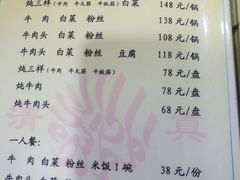 炖三样(牛肉 牛大筋 牛板筋)白菜 148 元/锅
牛肉 白菜 粉丝 108 元/锅
牛肉头 白菜 粉丝 108 元/锅
牛肉头 白菜 粉丝 豆腐 118 元/锅
炖三样(牛肉 牛大筋 牛板筋) 78 元/盘
炖牛肉 78 元/盘
炖牛肉头 68 元/盘
清 真
一人餐:
牛肉 白菜 粉丝 米饭1碗 38 元/份